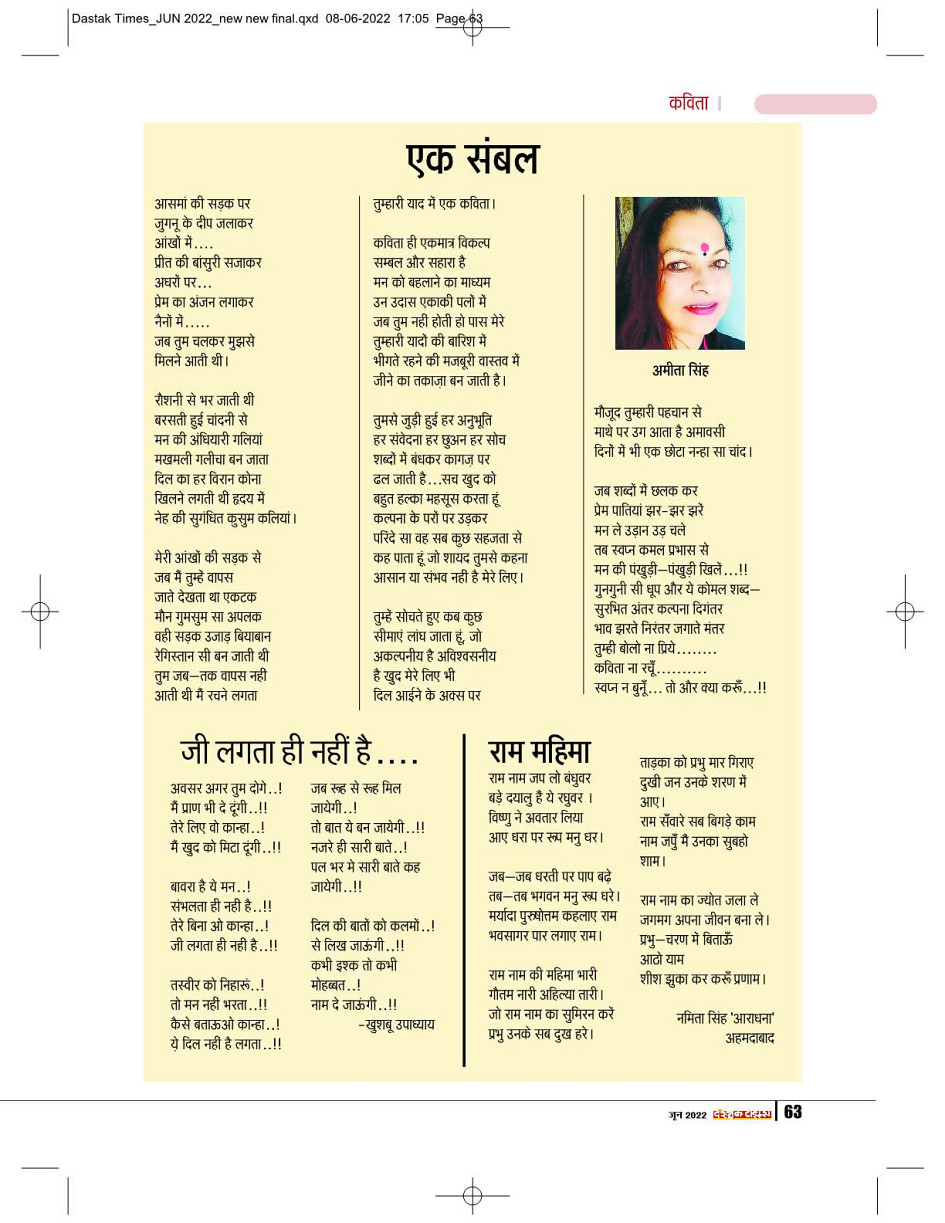 Dastak Times_JUN 2022_new new final.qxd 08-06-2022 17:05 Page 63
कविता
एक संबल
आसमां की सड़क पर
जुगनू के दीप जलाकर
आंखों में....
प्रीत की बांसुरी सजाकर
अधरों पर...
प्रेम का अंजन लगाकर
नैनों में.....
जब तुम चलकर मुझसे
मिलने आती थी।

रौशनी से भर जाती थी
बरसती हुई चांदनी से
मन की अंधियारी गलियां
मखमली गलीचा बन जाता
दिल का हर विरान कोना
खिलने लगती थी हृदय में
नेह की सुगंधित कुसुम कलियां।

मेरी आंखों की सड़क से
जब मैं तुम्हें वापस
जाते देखता था एकटक
मौन गुमसुम सा अपलक
वही सड़क उजाड़ बियाबान
रेगिस्तान सी बन जाती थी
तुम जब–तक वापस नही
आती थी मैं रचने लगता
तुम्हारी याद में एक कविता।

कविता ही एकमात्र विकल्प
सम्बल और सहारा है
मन को बहलाने का माध्यम
उन उदास एकाकी पलों में
जब तुम नही होती हो पास मेरे
तुम्हारी यादों की बारिश में
भीगते रहने की मजबूरी वास्तव में
जीने का तकाज़ा बन जाती है।

तुमसे जुड़ी हुई हर अनुभूति
हर संवेदना हर छुअन हर सोच
शब्दों में बंधकर कागज़ पर
ढल जाती है...सच खुद को
बहुत हल्का महसूस करता हूं
कल्पना के परों पर उड़कर
परिंदे सा वह सब कुछ सहजता से
कह पाता हूं जो शायद तुमसे कहना
आसान या संभव नही है मेरे लिए।

तुम्हें सोचते हुए कब कुछ
सीमाएं लांघ जाता हूं, जो
अकल्पनीय है अविश्वसनीय
है खुद मेरे लिए भी
दिल आईने के अक्स पर
अमीता सिंह
मौजूद तुम्हारी पहचान से
माथे पर उग आता है अमावसी
दिनों में भी एक छोटा नन्हा सा चांद।

जब शब्दों में छलक कर
प्रेम पातियां झर-झर झरें
मन ले उड़ान उड़ चले
तब स्वप्न कमल प्रभास से
मन की पंखुड़ी–पंखुड़ी खिलें...!!
गुनगुनी सी धूप और ये कोमल शब्द–
सुरभित अंतर कल्पना दिगंतर
भाव झरते निरंतर जगाते मंतर
तुम्ही बोलो ना प्रिये........
कविता ना रचूँ..........
स्वप्न न बुनूँ... तो और क्या करूँ...!!

जी लगता ही नहीं है....
अवसर अगर तुम दोगे..!
मैं प्राण भी दे दूंगी..!!
तेरे लिए वो कान्हा..!
मैं खुद को मिटा दूंगी..!!

बावरा है ये मन..!
संभलता ही नही है..!!
तेरे बिना ओ कान्हा..!
जी लगता ही नही है..!!

तस्वीर को निहारूं..!
तो मन नहीं भरता..!!
कैसे बताऊओ कान्हा..!
ये दिल नही है लगता..!!
जब रूह से रूह मिल
जायेगी..!
तो बात ये बन जायेगी..!!
नजरे ही सारी बाते..!
पल भर मे सारी बाते कह
जायेगी..!!

दिल की बातों को कलमों..!
से लिख जाऊंगी..!!
कभी इश्क तो कभी
मोहब्बत..!
नाम दे जाऊंगी..!!
-खुशबू उपाध्याय

राम महिमा
राम नाम जप लो बंधुवर
बड़े दयालु हैं ये रघुवर ।
विष्णु ने अवतार लिया
आए धरा पर रूप मनु धर।

जब–जब धरती पर पाप बढ़े
तब–तब भगवन मनु रूप धरे।
मर्यादा पुरुषोत्तम कहलाए राम
भवसागर पार लगाए राम।

राम नाम की महिमा भारी
गौतम नारी अहिल्या तारी।
जो राम नाम का सुमिरन करें
प्रभु उनके सब दुख हरे।
ताड़का को प्रभु मार गिराए
दुखी जन उनके शरण में
आए।
राम सँवारे सब बिगड़े काम
नाम जपूँ मैं उनका सुबहो
शाम।

राम नाम का ज्योत जला ले
जगमग अपना जीवन बना ले।
प्रभु–चरण में बिताऊँ
आठो याम
शीश झुका कर करूँ प्रणाम।

नमिता सिंह 'आराधना'
अहमदाबाद
जून 2022 दस्तक टाइम्स 63